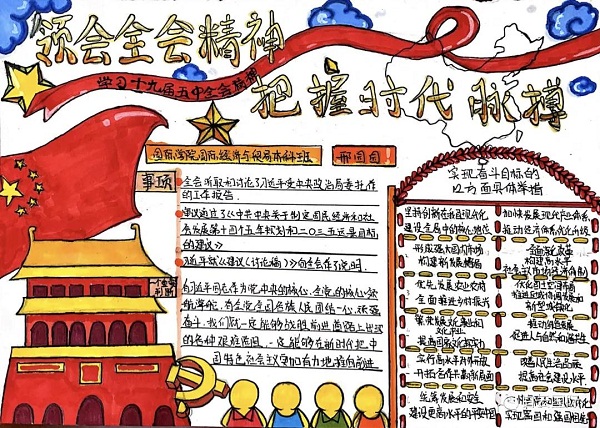 领会全会精神
学习十九届五中全会精神
把握时代脉搏
国际学院国际经济与贸易本科班
邢园园
事项
全会听取和讨论了习近平受中央政治局委托作
的工作报告.
审议通过了《中共中央关于制定国民经济和社
会发展第十四个五年规划和二〇三五远景目标
的建议》
习近平就《建议(讨论稿)》向全会作了说明.
一个重要
判断
有习近平同志作为党中央的核心、全党的核心领
航掌舵,有全党全国各族人民团结一心、顽强
奋斗,我们就一定能够战胜前进道路上出现
的各种艰难险阻,一定能够在新时代把中
国特色社会主义更加有力地推向前进
实现奋斗目标的
12方面具体举措
坚持创新在我国现代化
建设全局中的核心地位
加快发展现代产业体系,
推动经济体系优化升级
形成强大国内市场
构建新发展格局
全面深化改革
构建高水平
社会主义市场经济体制
优先发展农业农村
全面推进乡村振兴
优化国土空间布局
推进区域协调发展和
新型城镇化
繁荣发展文化事业和
文化产业
提高国家文化软实力
推动绿色发展
促进人与自然和谐共生
实行高水平对外开放
开拓合作共赢新局面
改善人民生活品质
提高社会建设水平
统筹发展和安全
建设更高水平的平安中国
加快国防和军队现代化
实现富国和强军相统一